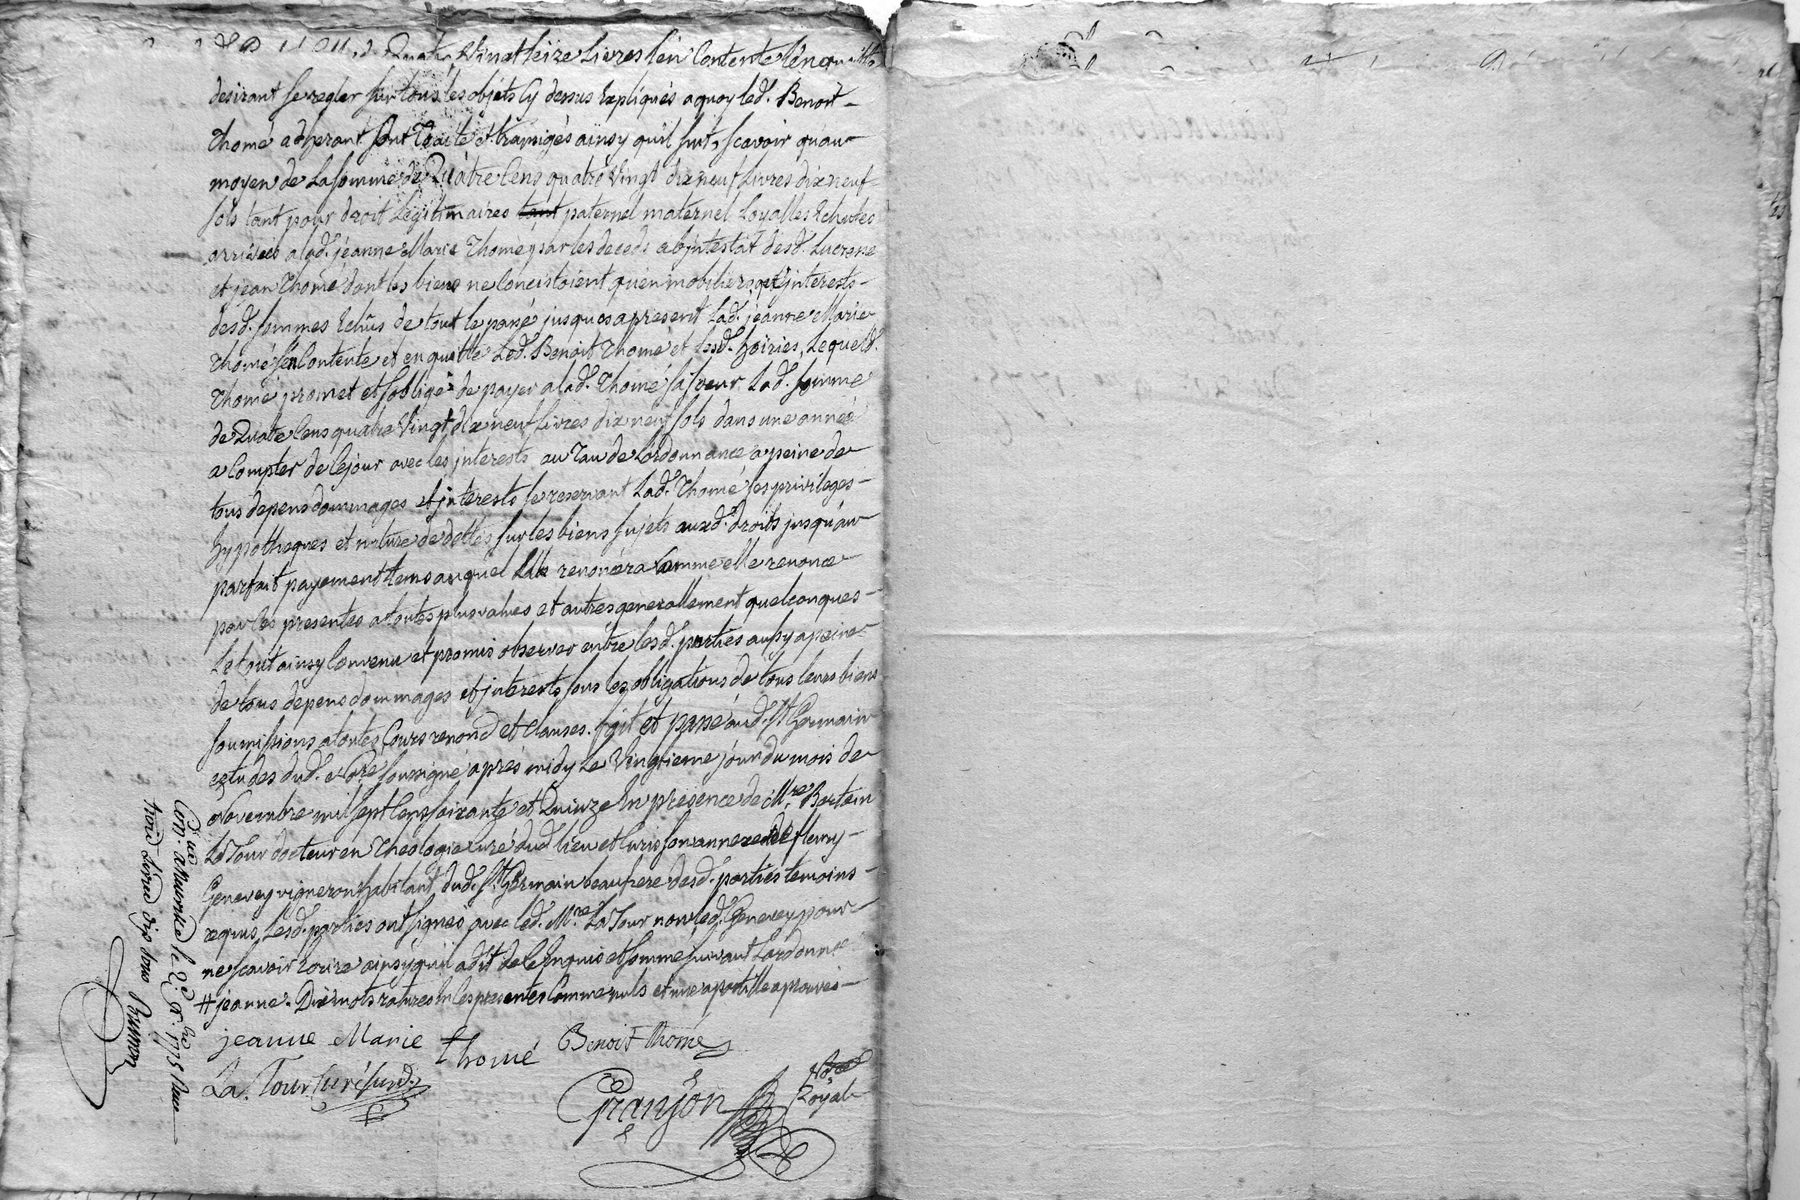 Quatre Vingt seize Livres s'en Contente l'en quitte
desirant se regler sur tous les objets cy dessus Expliqués a quoy led. Benoit
Thomé adherant sont Traité et transigés ainsy quil suit, scavoir quau
moyen de La somme de Quatre Cens quatre Vingt dix neuf Livres dix neuf
sols tant pour droit Legitimaires tant paternel maternel Loyalles Echutes
arrivées a lad. jeanne Marie Thomé par les deceds abintestat desd. Lucresse
et jean Thomé dont les biens ne Concistoient quen mobiliers, et jnterests
desd. sommes Echûs de tout le passé jusques apresent Lad. jeanne Marie
Thomé s'en Contente et en quitte Led. Benoit Thomé et Lesd. hoiries, Lequeld.
Thomé promet et s'obligé de payer a lad. Thomé sa sœur Lad. somme
de Quatre Cens quatre Vingt dix neuf Livres dix neuf sols dans une année
a Compter de Cejour avec les jnterests au Tau de L'ordonnance apeine de
tous depens dommages et jnterests se reservant Lad. Thomé ses privileges
hypotheques et nature de dettes sur les biens sujets auxd. Droits jusqu'au
parfait payement tems auquel Elle renoncera Comme elle renonce
par les presentes a toutes plus values et autres generallement quelconques
Le tout ainsy Convenu et promis observer entre lesd. parties aussy a peine
de tous depens dommages et jnterests sous les obligations de tous leurs biens
soumissions a toutes Cours renond et clauses. fait et passé aud. St Germain
estudes dud. Nore soussigné aprés midy Le Vingtieme jour du mois de
Novembre mil sept Cens soixante et Quinze En presence de Mre Bertein
La Tour docteur en Theologie curé dud. lieu et Curis son annexe de fleury
Genevey vigneron habitant dud. St Germain beaufrere desd. parties temoins
requis, Lesd. parties ont signés avec led. Mre La Tour non led. Genevey pour
ne scavoir Ecrire ainsy quil a dit de ce Enquis et sommé suivant L'ordonnce
# jeanne. Dix mots ratures En les presentes Comme nuls et une apostille aprouvés
jeanne Marie thomé Benoit Thomé
La Tour Curé susd.
Granjon Nore Royal
Con. au le 2e Xbre 1775 Reçu
trois Livres dix sous